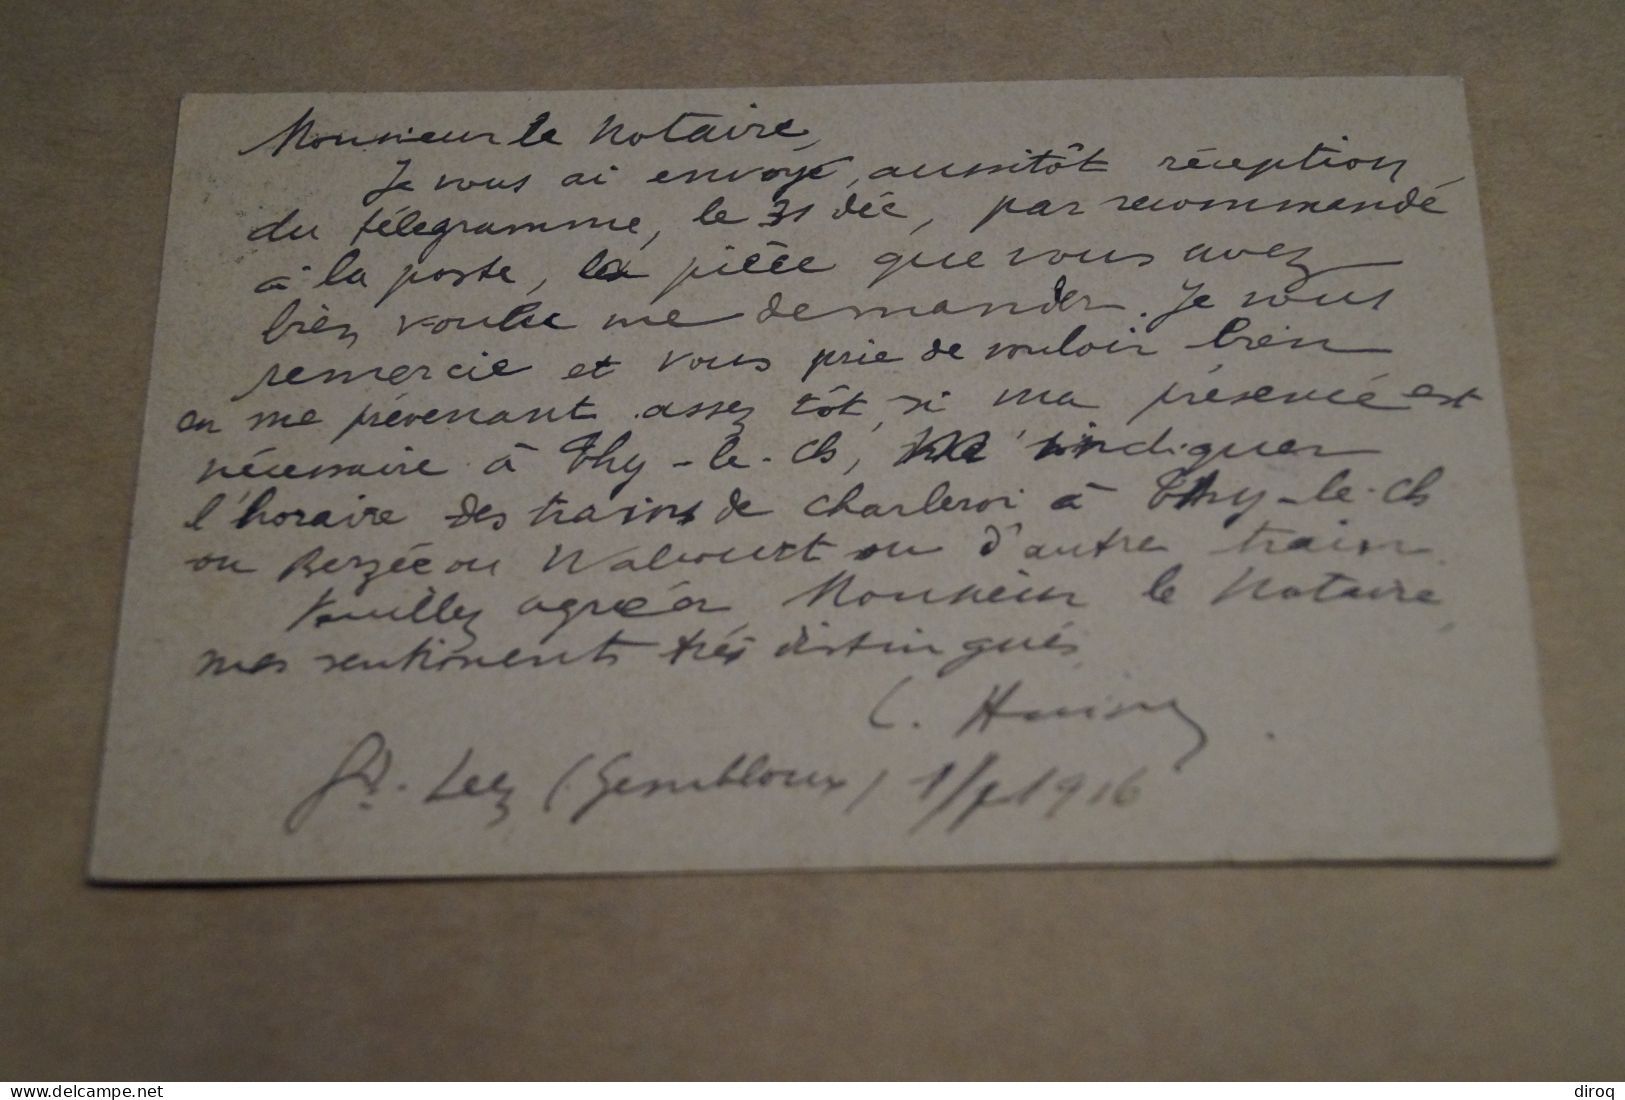 Monsieur le Notaire,
Je vous ai envoyé, aussitôt réception
du télégramme, le 31 déc, par recommandé
à la poste, la pièce que vous avez
bien voulu me demander. Je vous
remercie et vous prie de vouloir bien
en me prévenant assez tôt, si ma présence est
nécessaire à Thy-le-Ch, indiquer
l'horaire des trains de Charleroi à Thy-le-Ch
ou Berzée ou Walcourt ou d'autre train.
Veuillez agréer, Monsieur le Notaire,
mes sentiments très distingués
C.
Gd. Leez (Gembloux) 1/1 1916
www.delcampe.net
diroq